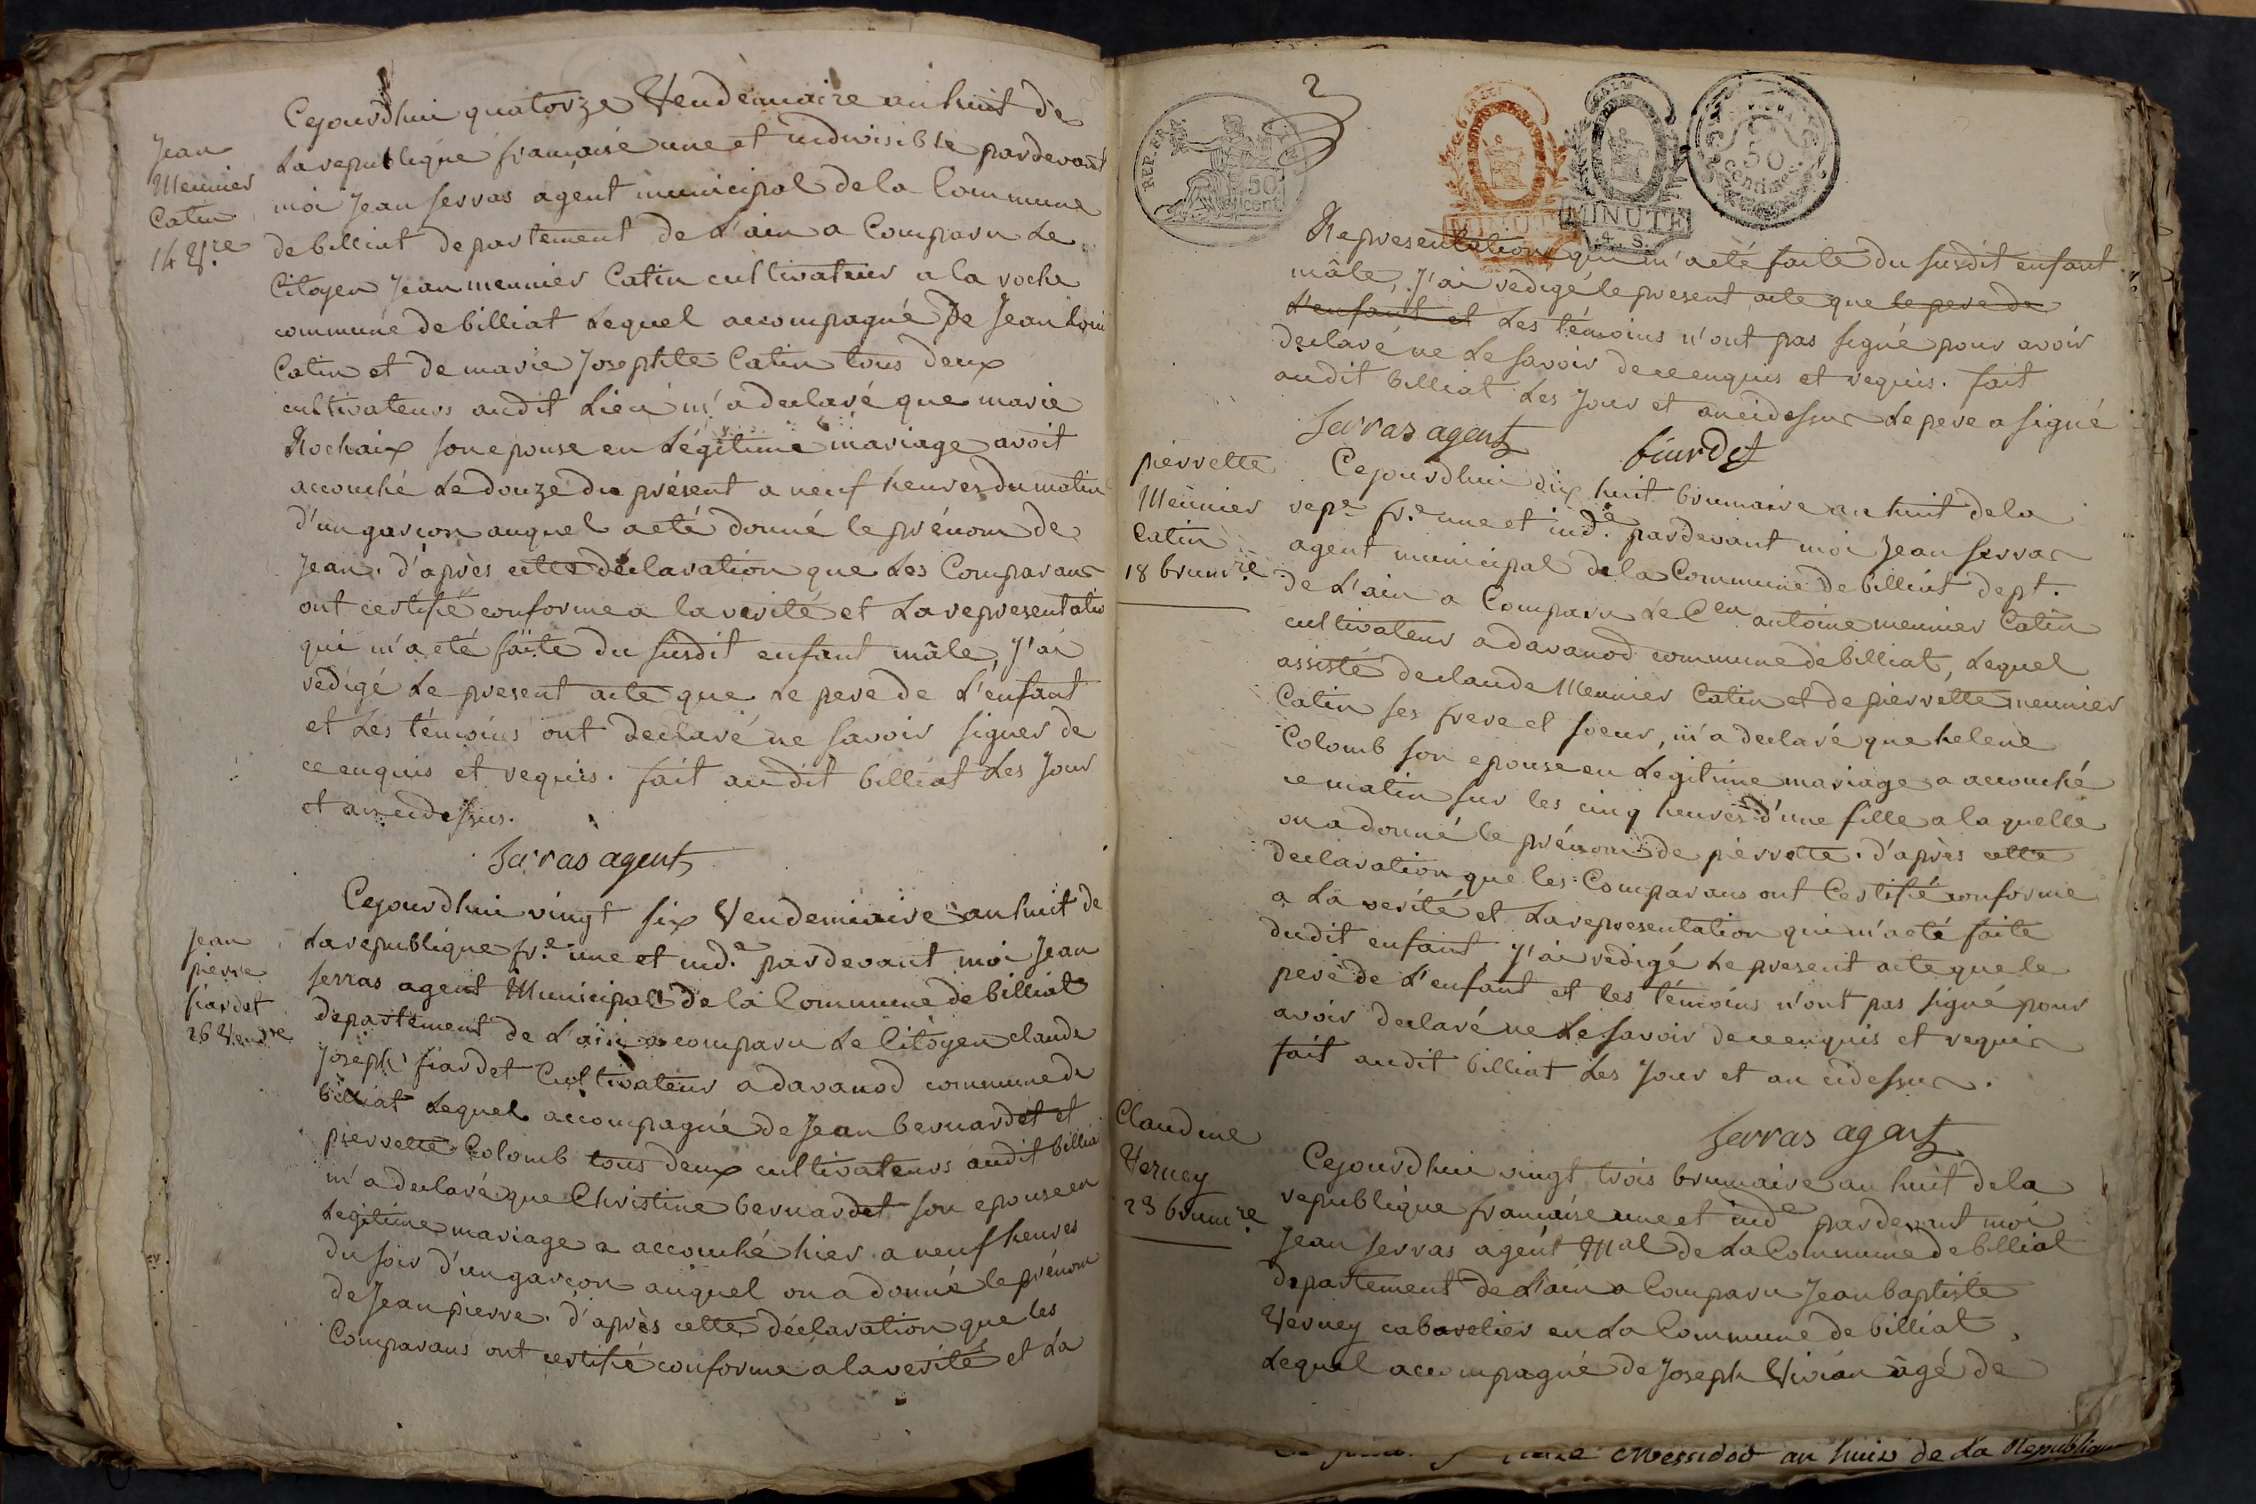 Cejourdhui quatorze Vendémiaire an huit de
Jean
Meunier
Catin
14 V.re
La republique française une et indivisible pardevant
moi Jean serras agent municipal de la Commune
de billiat departement de L'ain a Comparu Le
Citoyen Jean meunier Catin cultivateur a la roche
commune de billiat Lequel accompagné de Jean Loui
Catin et de marie Josephte Catin tous deux
cultivateurs audit Lieu m'a declaré que marie
Rochaix son epouse en Légitime mariage avoit
accouché Le douze du présent a neuf heures du matin
d'un garçon auquel a eté donné le prénom de
Jean. d'après cette declaration que Les Comparans
ont certifié conforme a la verité et La representatio
qui m'a eté faite du susdit enfant mâle, J'ai
redigé Le present acte que Le pere de L'enfant
et Les témoins ont declaré ne savoir signer de
ce enquis et requis. fait audit billiat Les Jour
et an cidessus.
Serras agent
Cejourdhui vingt six Vendemiaire an huit de
Jean
pierre
fiardet
26 Vend.re
La republique fr.e une et ind.e pardevant moi Jean
serras agent Municipal de la Commune de billiat
departement de L'ain a comparu Le Citoyen claude
Joseph fiardet Cultivateur a davanod commune de
billiat Lequel accompagné de Jean bernardet et
pierrette Colomb tous deux cultivateurs audit billia
m'a declaré que Christine bernardet son epouse en
Legitime mariage a accouché hier a neuf heures
du soir d'un garçon auquel on a donné le prénom
de Jean pierre. d'après cette déclaration que les
Comparans ont certifié conforme a la verité et La
2
REP. FRA.
50
cent.
MINUTE
MINUTE
4. S.
50
Centimes
Representation qui m'a eté faite du susdit enfant
mâle, J'ai redigé le present acte que le pere de
L'enfant et Les témoins n'ont pas signé pour avoir
declaré ne Le savoir de ce enquis et requis. fait
audit billiat Les Jour et an cidessus Le pere a signé
Serras agent
pierrette
Meunier
Catin
18 brum.re
Cejourdhui dix huit brumaire an huit de la
rep.e fr.e une et ind.e pardevant moi Jean serras
agent municipal de la Commune de billiat dept.
de L'ain a Comparu Le C.en antoine meunier Catin
cultivateur a davanod commune de billiat, Lequel
assisté de claude Meunier Catin et de pierrette meunier
Catin ses frere et soeur, m'a declaré que helene
Colomb son epouse en Legitime mariage a accouché
ce matin sur les cinq heures d'une fille a laquelle
on a donné le prénom de pierrette. d'après cette
declaration que les Comparans ont Certifié conforme
a La verité et La representation qui m'a eté faite
dudit enfant, J'ai redigé Le present acte que le
pere de L'enfant et les témoins n'ont pas signé pour
avoir declaré ne Le savoir de ce enquis et requis
fait audit billiat Les Jour et an cidessus.
Serras agent
Claudine
Verney
23 brum.re
Cejourdhui vingt trois brumaire an huit de la
republique française une et ind.e pardevant moi
Jean serras agent M.al de La Commune de billiat
departement de L'ain a Comparu Jean baptiste
Verney cabaretier en La Commune de billiat,
Lequel accompagné de Joseph Vivian âgé de
Messidor an huit de La Republique